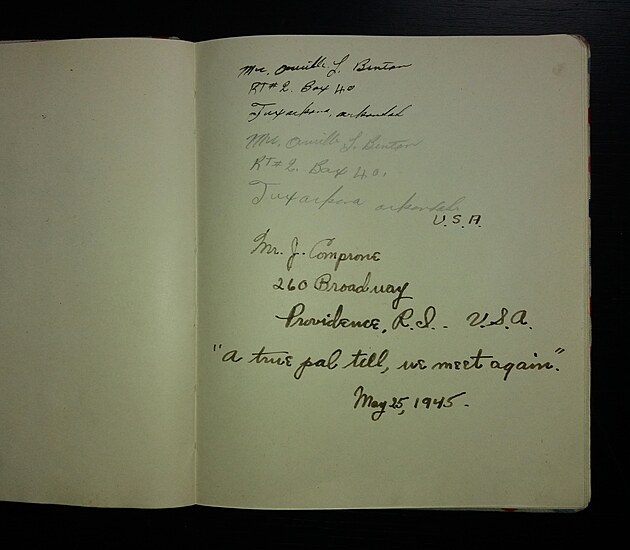 Mr. Orville L. Benton
RT#2. Box 40
Texarkana, arkansas
Mr. Orville L. Benton
RT#2. Box 40.
Texarkana arkansas
U.S.A.
Mr. J. Comprone
260 Broadway
Providence, R.I. - U.S.A.
"A true pal till, we meet again."
May 25, 1945.